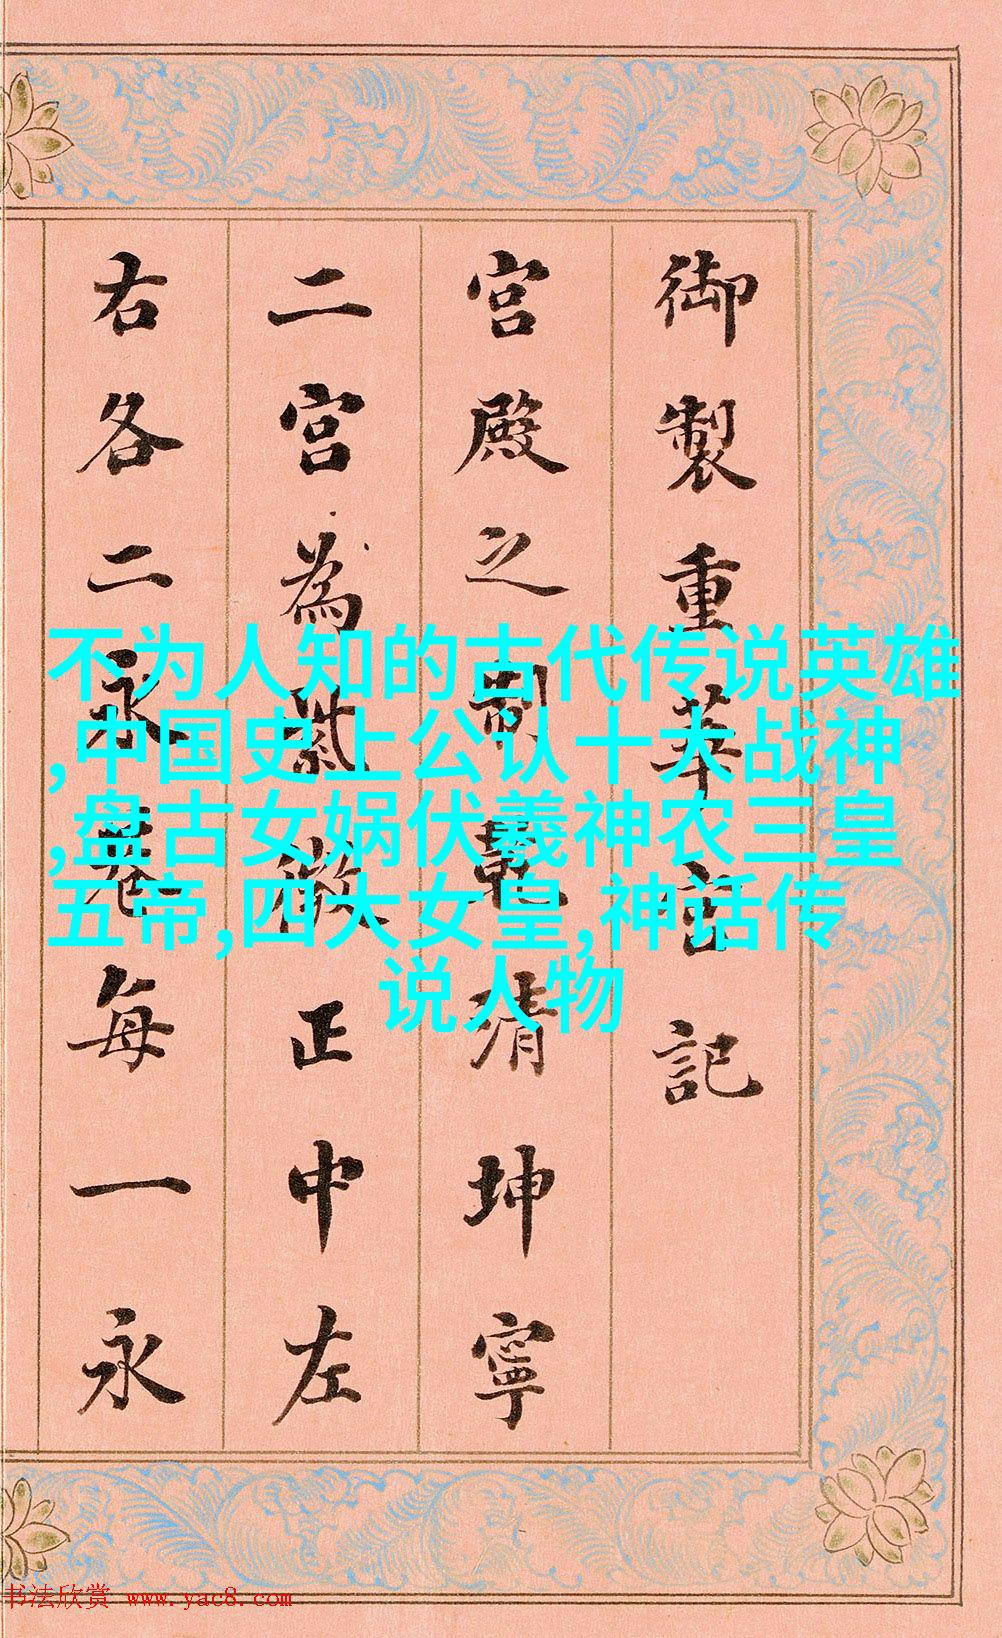 御製重華宮記
宮殿之制乾清坤寧
二宮為氣徵正中左
右各二永巷每一永
不为人知的古代传说英雄
,中国史上公认十大战神
,盘古女娲伏羲神农三皇
五帝,四大女皇,神话传
说人物
书法欣赏 www.yac8.com